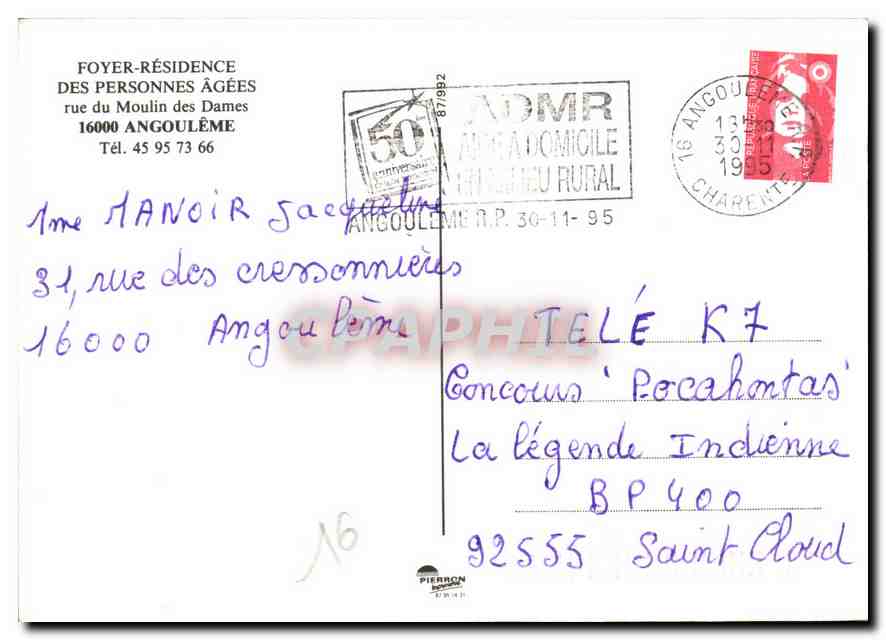 FOYER-RÉSIDENCE
DES PERSONNES ÂGÉES
rue du Moulin des Dames
16000 ANGOULÊME
Tél. 45 95 73 66
87/992
50e
anniversaire
ADMR
AIDE A DOMICILE
EN MILIEU RURAL
ANGOULEME R.P. 30-11-95
16 ANGOULEME R.P.
13H30
30-11
1995
CHARENTE
REPUBLIQUE FRANÇAISE
LA POSTE
Mme MANOIR Jacqueline
31, rue des cressonnières
16000 Angoulême
CPAPHIL
TELÉ K7
Concours 'Pocahontas'
La légende Indienne
BP 400
92555 Saint Cloud
16
PIERRON